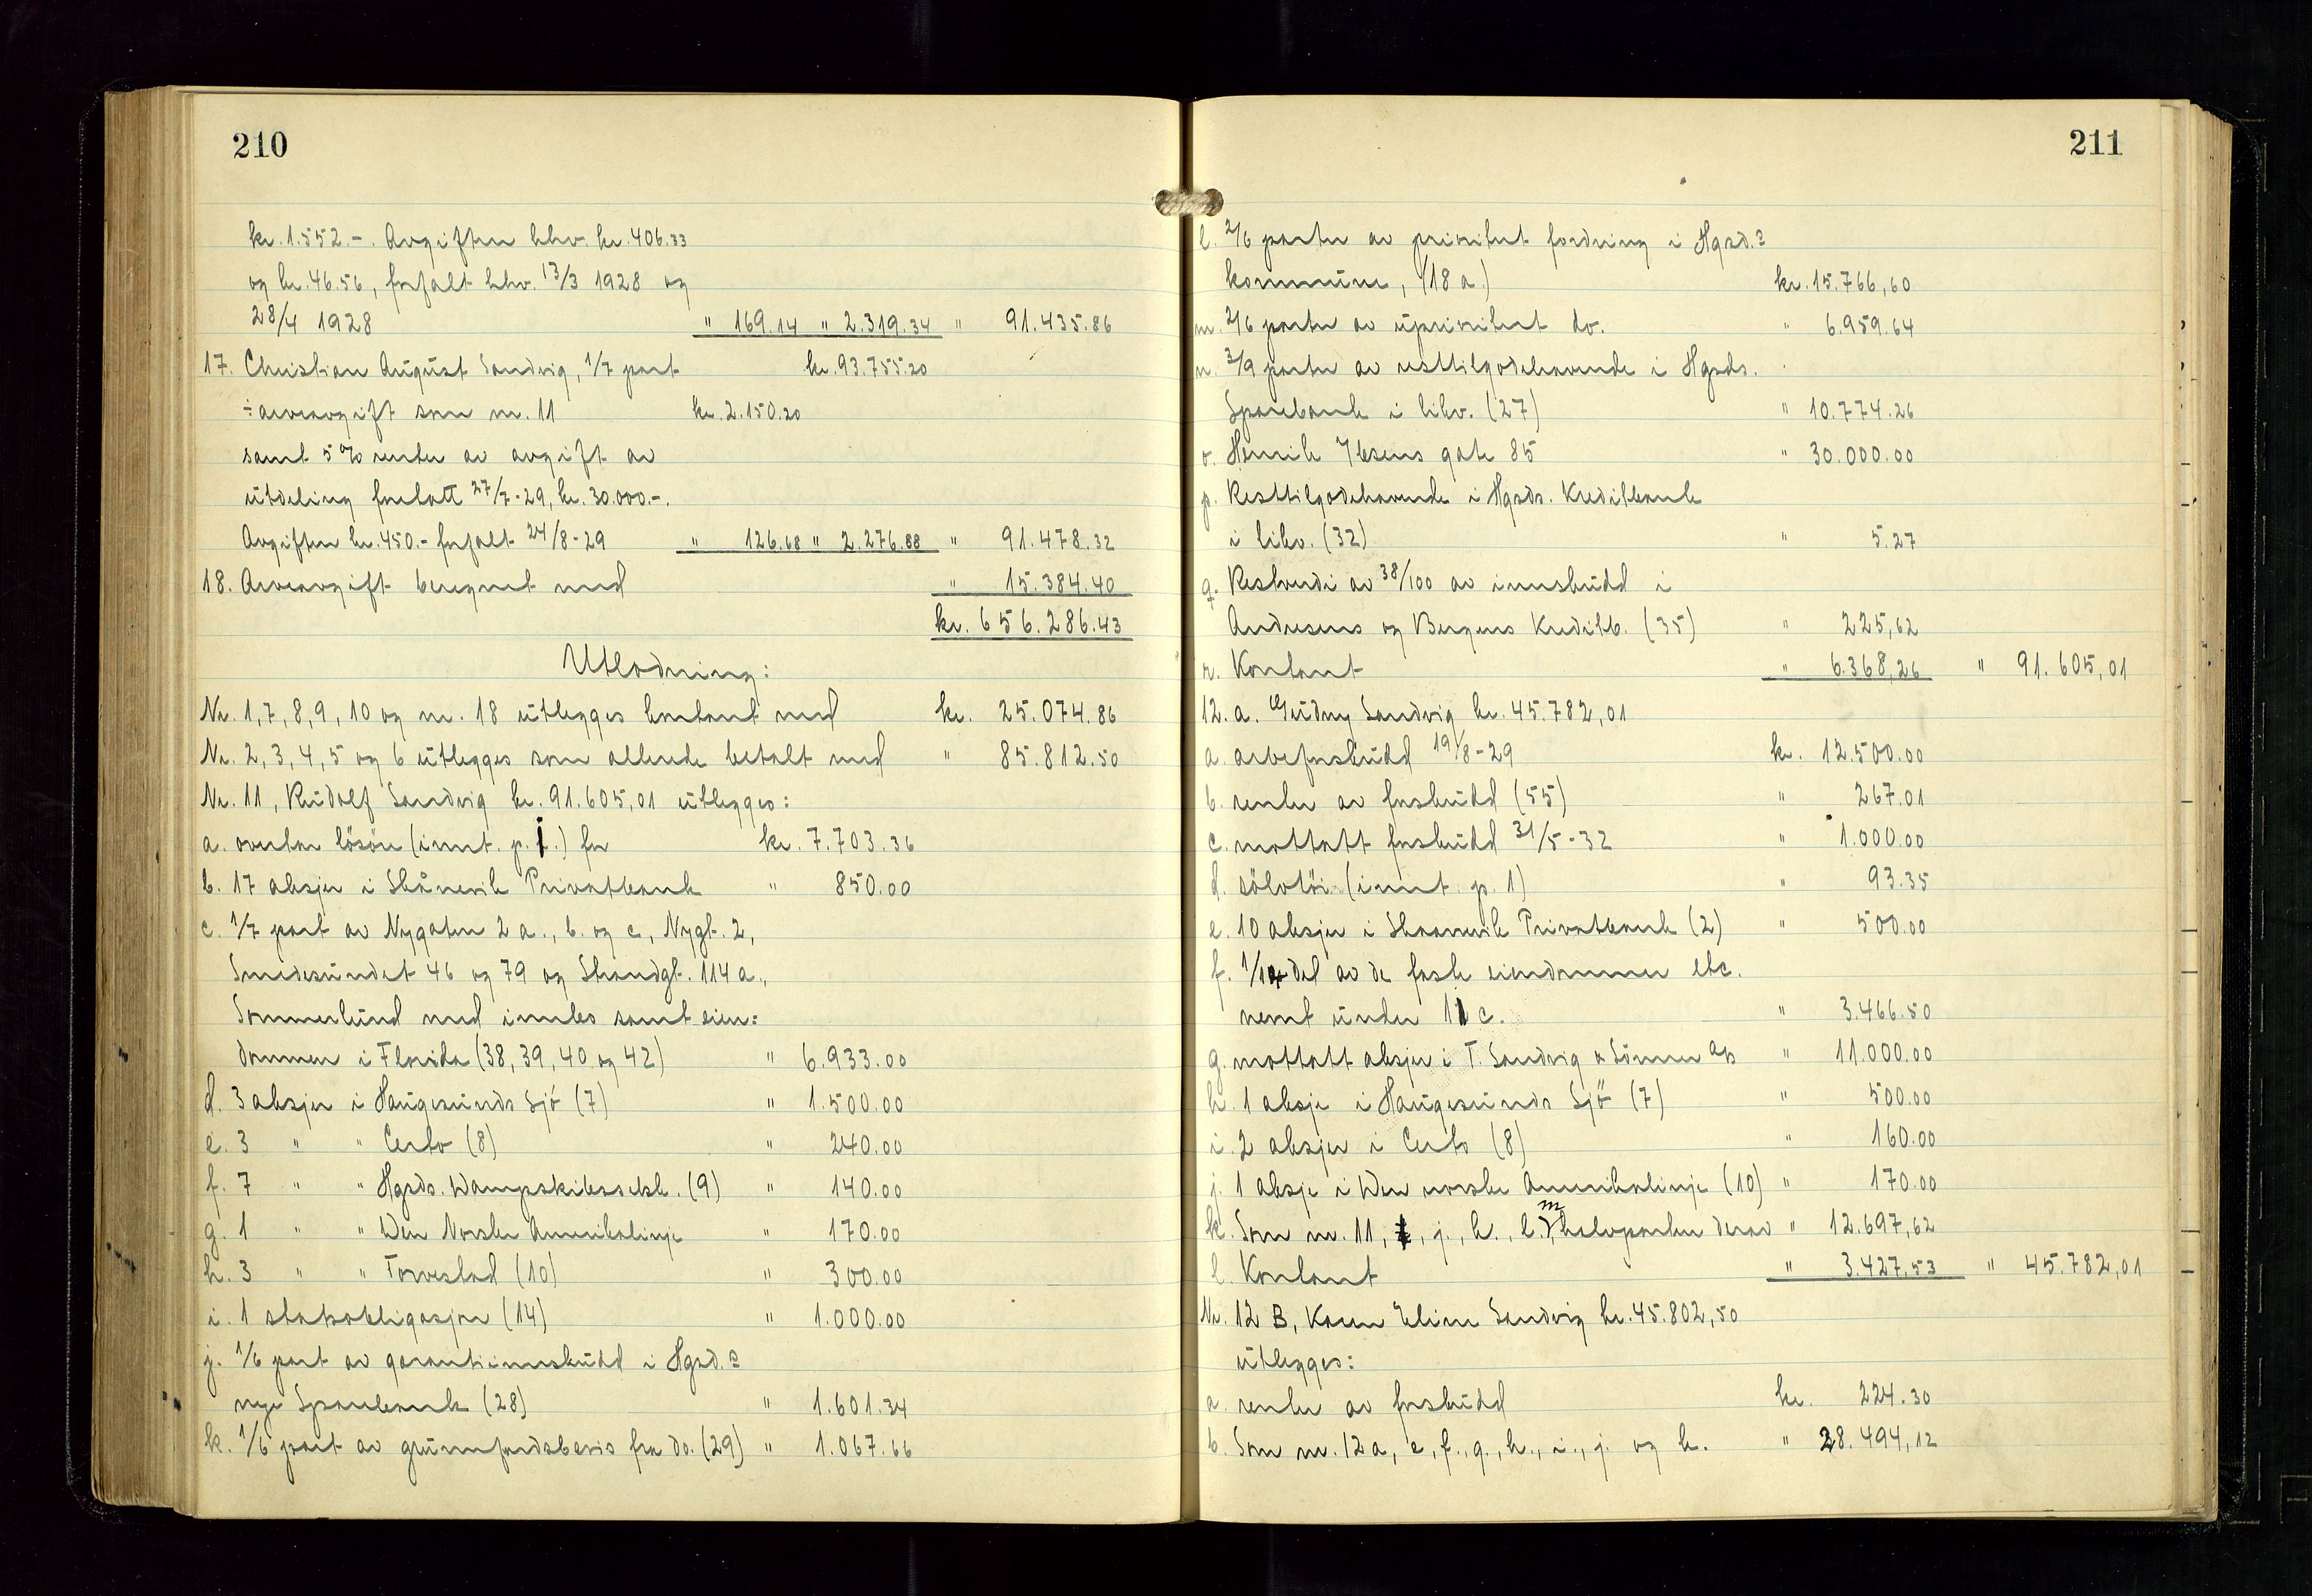 210
kr. 1.552.-. Avgiften hhv. kr. 406.33
og kr. 46.56, forfalt hhv. 13/3 1928 og
28/4 1928 " 169.14 " 2.319.34 " 91.435.86
17. Christian August Sandvig, 1/7 part kr. 93.755.20
÷ arveavgift som nr. 11 kr. 2.150.20
samt 5% renter av avgift av
utdeling foretatt 27/7-29, kr. 30.000.-.
Avgiften kr. 450.- forfalt 24/8-29 " 126.68 " 2.276.88 " 91.478.32
18. Arveavgift beregnet med " 15.384.40
kr. 656.286.43
Utlodning:
Nr. 1, 7, 8, 9, 10 og nr. 18 utlegges kontant med kr. 25.074.86
Nr. 2, 3, 4, 5 og 6 utlegges som allerede betalt med " 85.812.50
Nr. 11, Rudolf Sandvig kr. 91.605,01 utlegges:
a. overtar lösöre (innt. p. 1.) for kr. 7.703.36
b. 17 aksjer i Skånevik Privatbank " 850.00
c. 1/7 part av Nygaten 2 a., b. og c, Nygt. 2,
Smedesundet 46 og 79 og Strandgt. 114 a.,
Sommerlund med innbo samt eien=
dommer i Florida (38, 39, 40 og 42) " 6.933.00
d. 3 aksjer i Haugesunds Sjö (7) " 1.500.00
e. 3 " " Certo (8) " 240.00
f. 7 " " Hgsds. Dampskibsselsk. (9) " 140.00
g. 1 " " Den Norske Amerikalinje " 170.00
h. 3 " " Torvestad (10) " 300.00
i. 1 statsobligasjon (14) " 1.000.00
j. 1/6 part av garantiinnskudd i Hgsd.s
nye Sparebank (28) " 1.601.34
k. 1/6 part av grunnfondsbevis fra do. (29) " 1.067.66
211
l. 2/6 parter av prioritert fordring i Hgsd.s
kommune, (18 a.) kr. 15.766,60
m. 2/6 parter av uprioritert do. " 6.959.64
n. 3/9 parter av resttilgodehavende i Hgsds.
Sparebank i likv. (27) " 10.774.26
o. Henrik Ibsens gate 85 " 30.000.00
p. Resttilgodehavende i Hgsds. Kreditbank
i likv. (32) " 5.27
q. Restverdi av 38/100 av innskudd i
Andresens og Bergens Kreditb. (35) " 225,62
r. Kontant " 6.368,26 " 91.605,01
12. a. Gudny Sandvig kr. 45.782,01
a. arveforskudd 19/8-29 kr. 12.500.00
b. renter av forskudd (55) " 267.01
c. mottatt forskudd 31/5-32 " 1.000.00
d. sölvtöi (innt. p. 1) " 93.35
e. 10 aksjer i Skaanevik Privatbank (2) " 500.00
f. 1/14 del av de faste eiendommer etc.
nevnt under 11 c. " 3.466.50
g. mottatt aksjer i T. Sandvig & Sönner A/S " 11.000.00
h. 1 aksje i Haugesunds Sjö (7) " 500.00
i. 2 aksjer i Certo (8) " 160.00
j. 1 aksje i Den norske Amerikalinje (10) " 170.00
k. Som nr. 11, i, j., k., l., m halvparten derav " 12.697,62
l. Kontant " 3.427,53 " 45.782,01
Nr. 12 B, Karen Eline Sandvig kr. 45.802,50
utlegges:
a. renter av forskudd kr. 224.30
b. Som nr. 12 a, e, f., g., h., i., j. og k. " 28.494,12